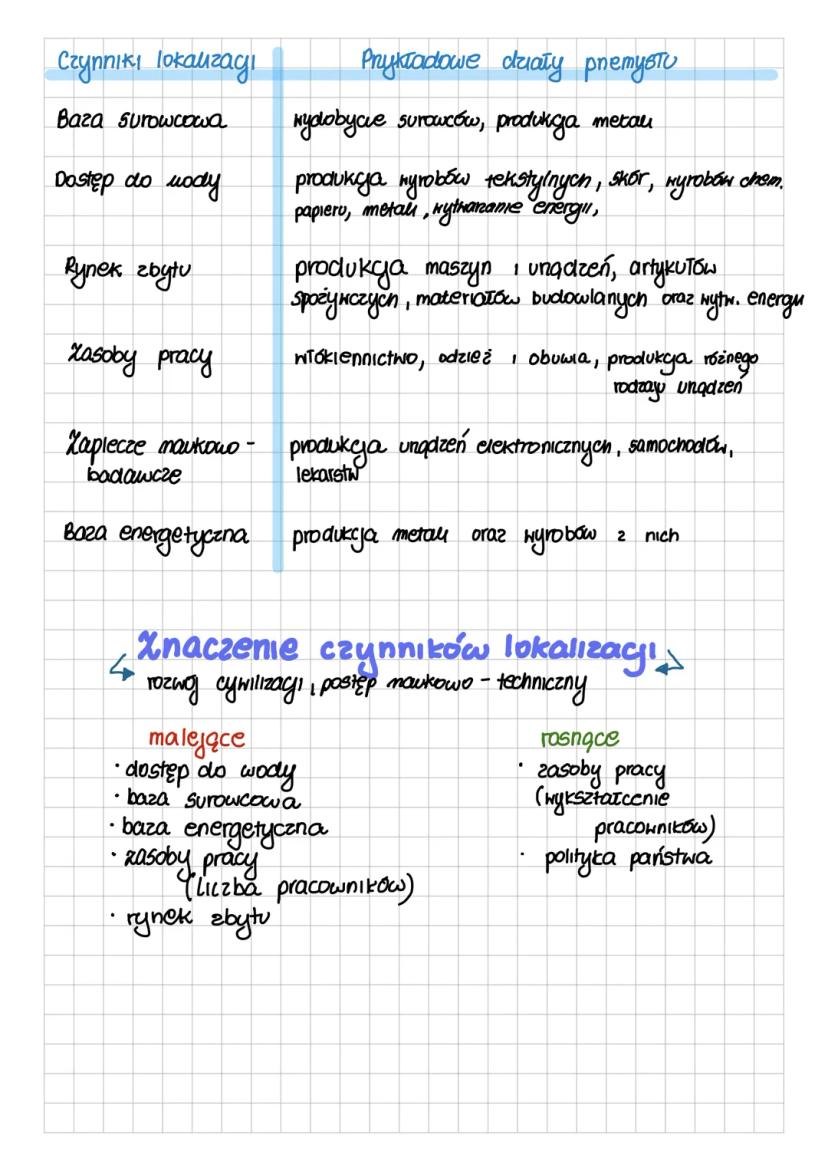 Czynniki lokalizacji Przykładowe działy przemysłu
Baza surowcowa wydobycie surowców, produkcja metali
Dostęp do wody produkcja wyrobów tekstylnych, skór, wyrobów chem.
papieru, metali, wytwarzanie energii,
Rynek zbytu produkcja maszyn i urządzeń, artykułów
spożywczych, materiałów budowlanych oraz wytw. energii
Zasoby pracy włókiennictwo, odzież i obuwia, produkcja różnego
rodzaju urządzeń
Zaplecze naukowo- produkcja urządzeń elektronicznych, samochodów,
badawcze lekarstw
Baza energetyczna produkcja metali oraz wyrobów z nich
Znaczenie czynników lokalizacji
rozwój cywilizacji, postęp naukowo-techniczny
malejące rosnące
· dostęp do wody · zasoby pracy
· baza surowcowa (wykształcenie
· baza energetyczna pracowników)
· zasoby pracy · polityka państwa
(liczba pracowników)
· rynek zbytu